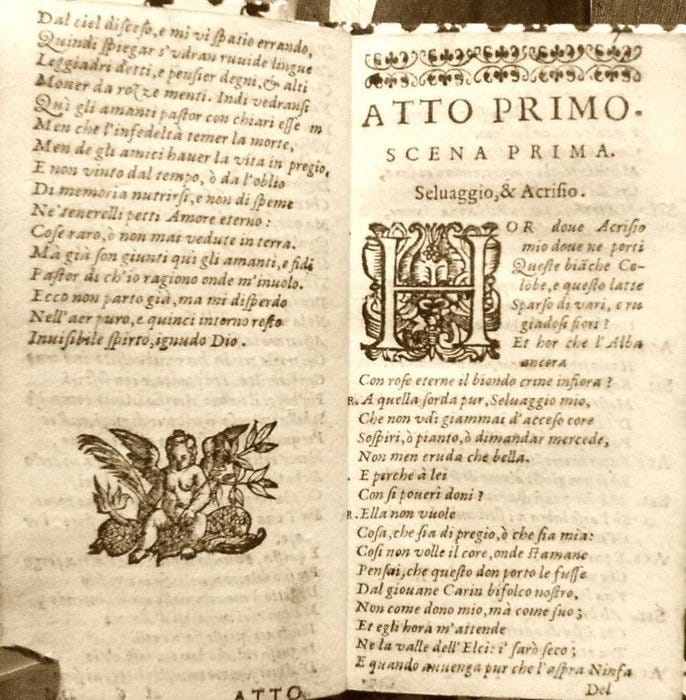 Dal ciel disceso, e mi vi spatio errando,
Quindi spiegar s'vdran ruuide lingue
Leggiadri detti, e pensier degni, & alti
Mouer da rozze menti. Indi vedransi
Quì gli amanti pastor con chiari esse m
Men che l'infedeltà temer la morte,
Men de gli amici hauer la vita in pregio,
E non vinto dal tempo, ò da l'oblio
Di memoria nutrirsi, e non di speme
Ne' tenerelli petti Amore eterno:
Cose raro, ò non mai vedute in terra.
Mà già son giunti qui gli amanti, e fidi
Pastor di ch'io ragiono onde m'inuolo.
Ecco non parto già, ma mi disperdo
Nell'aer puro, e quinci intorno resto
Inuisibile spirto, ignudo Dio.
ATTO
ATTO PRIMO.
SCENA PRIMA.
Seluaggio, & Acrisio.
HOR doue Acrisio
mio doue ne porti
Queste biāche Co-
lobe, e questo latte
Sparso di vari, e ru
giadosi fiori?
Et hor che l'Alba
ancora
Con rose eterne il biondo crine infiora?
R. A quella sorda pur, Seluaggio mio,
Che non vdì giammai d'acceso core
Sospiri, ò pianto, ò dimandar mercede,
Non men cruda che bella.
. E perche à lei
Con sì poueri doni?
R. Ella non vuole
Cosa, che sia di pregio, ò che sia mia:
Così non volle il core, onde stamane
Pensai, che questo don porto le fusse
Dal giouane Carin bifolco nostro,
Non come dono mio, mà come suo;
Et egli hora m'attende
Ne la valle dell'Elci: i' sarò seco;
E quando auuenga pur che l'aspra Ninfa
Del